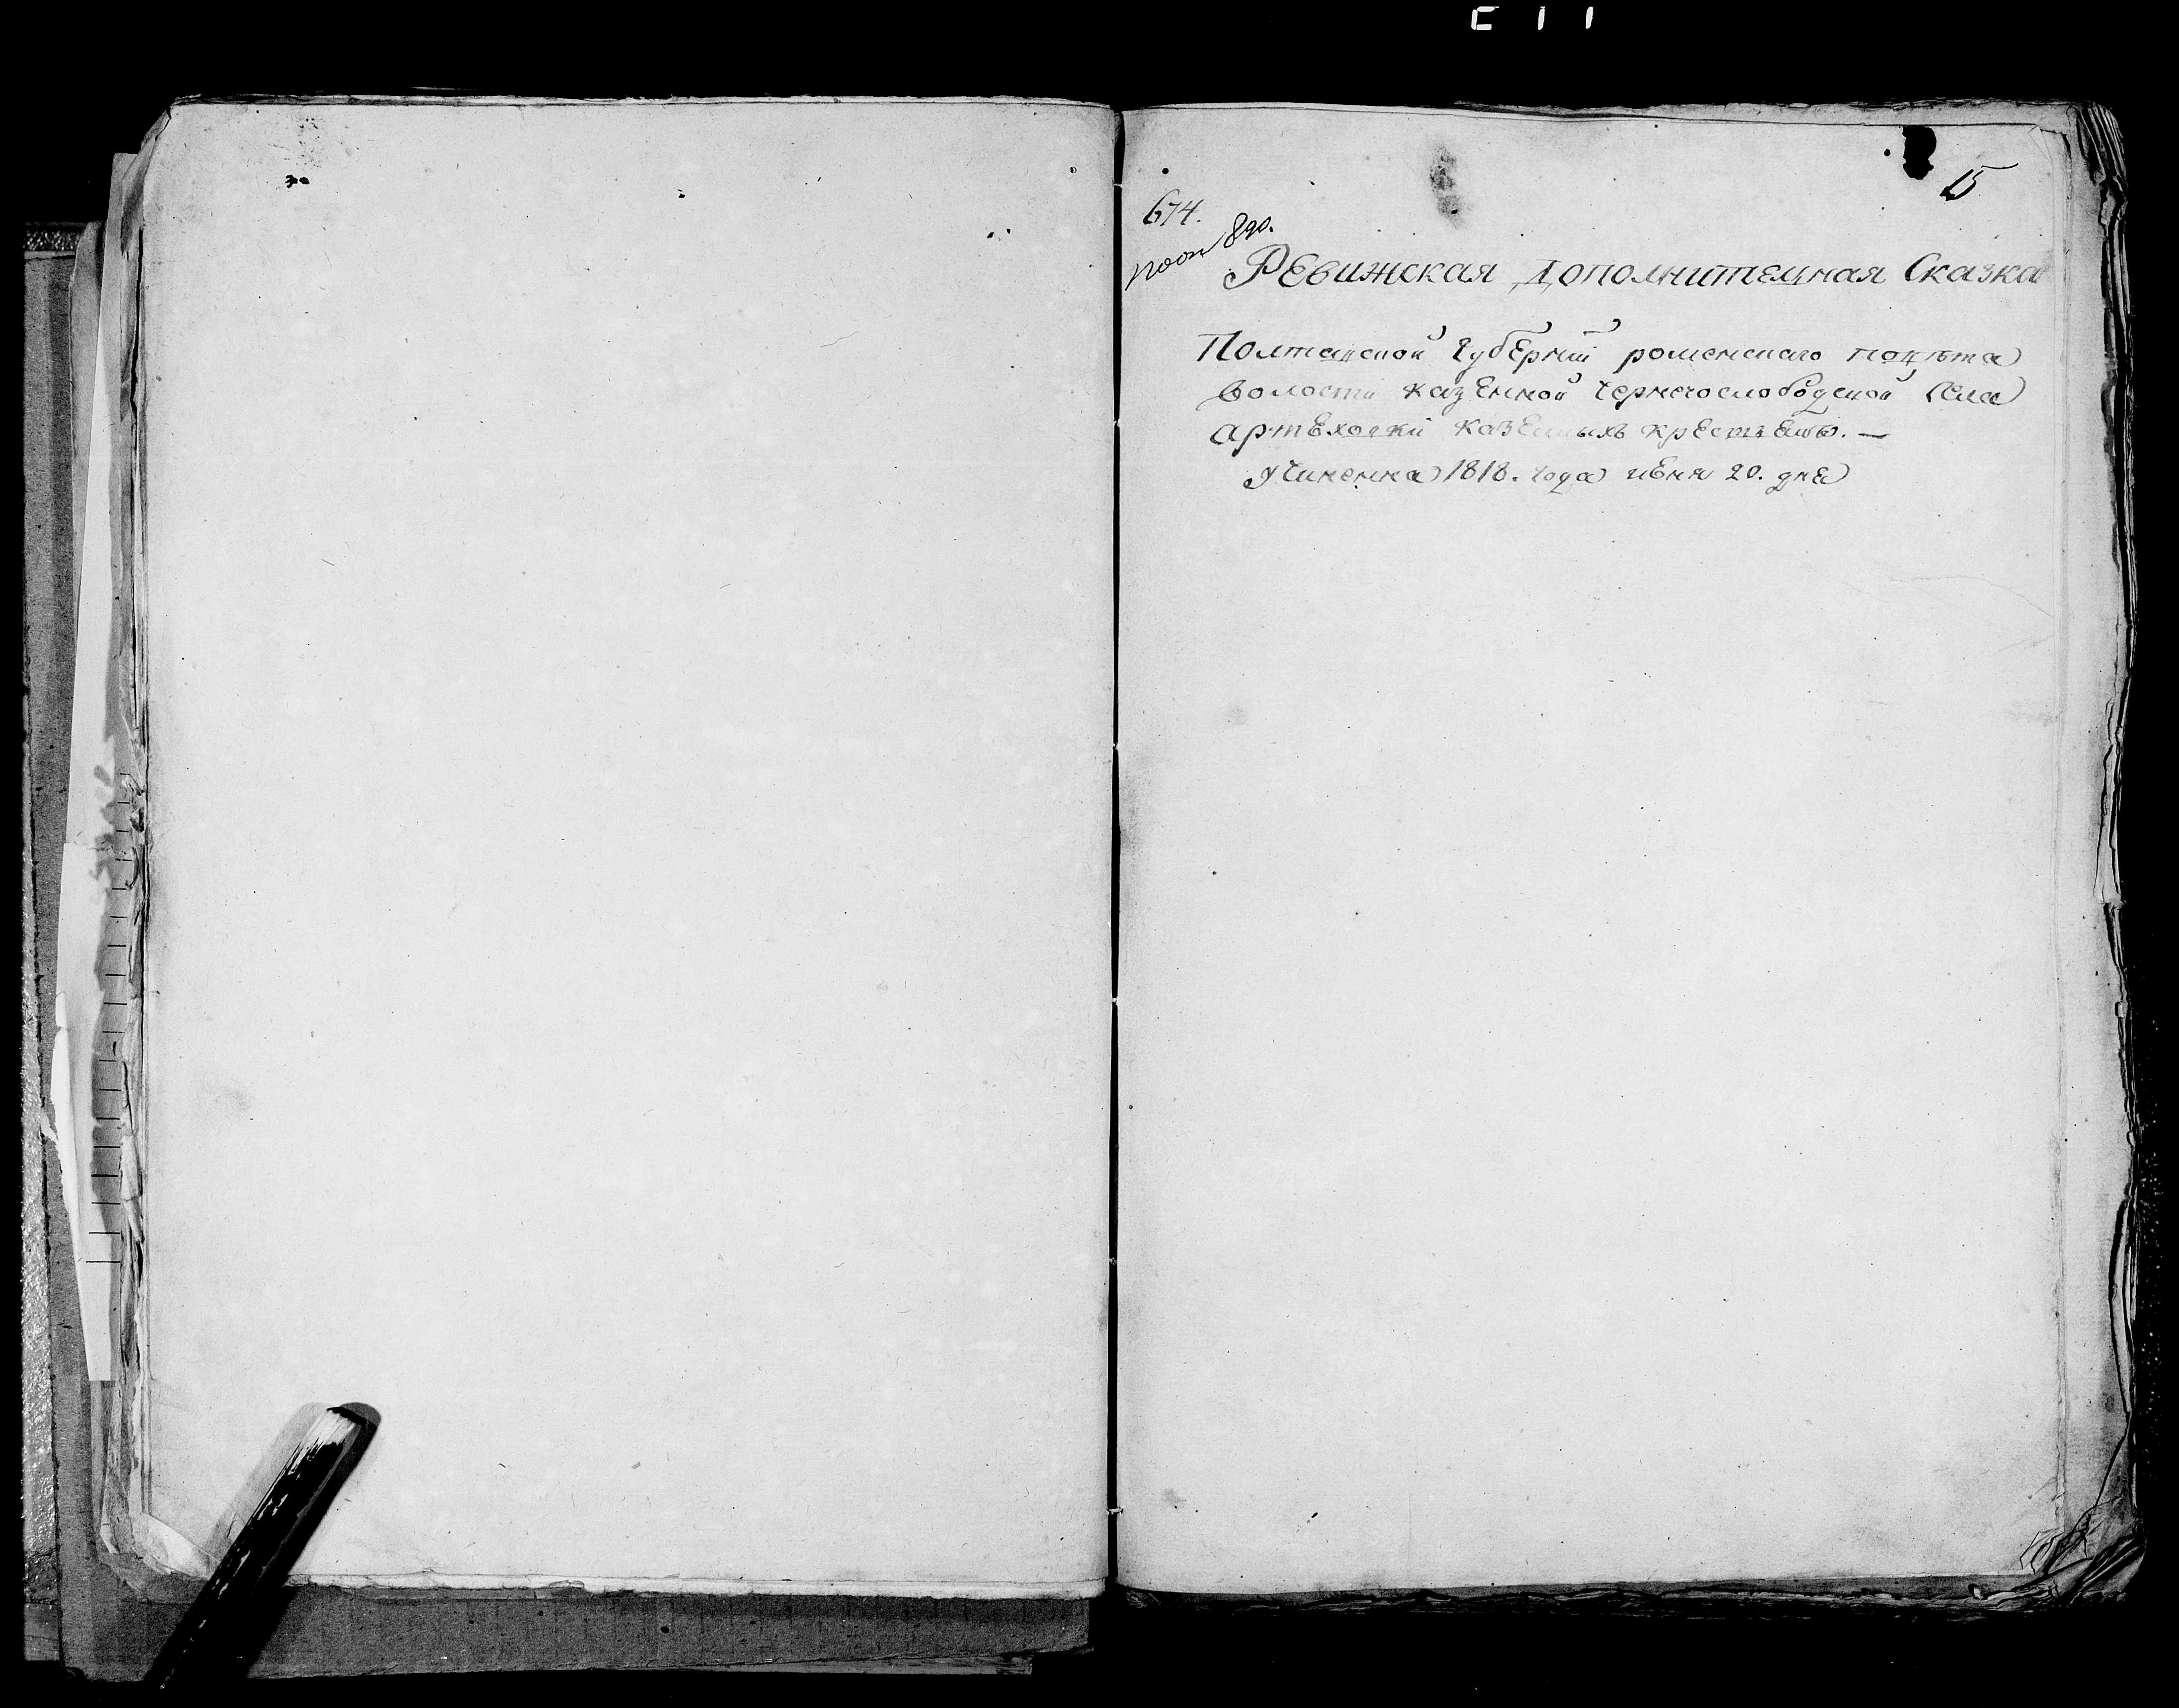 15
674.
890.
Ревижская Дополнителная Сказка
Полтавской губернии роменского повѣта
волости казенной Чернечослободской Села
артеховки казенныхъ крестьянъ. —
учиненна 1818. года июня 20. дня